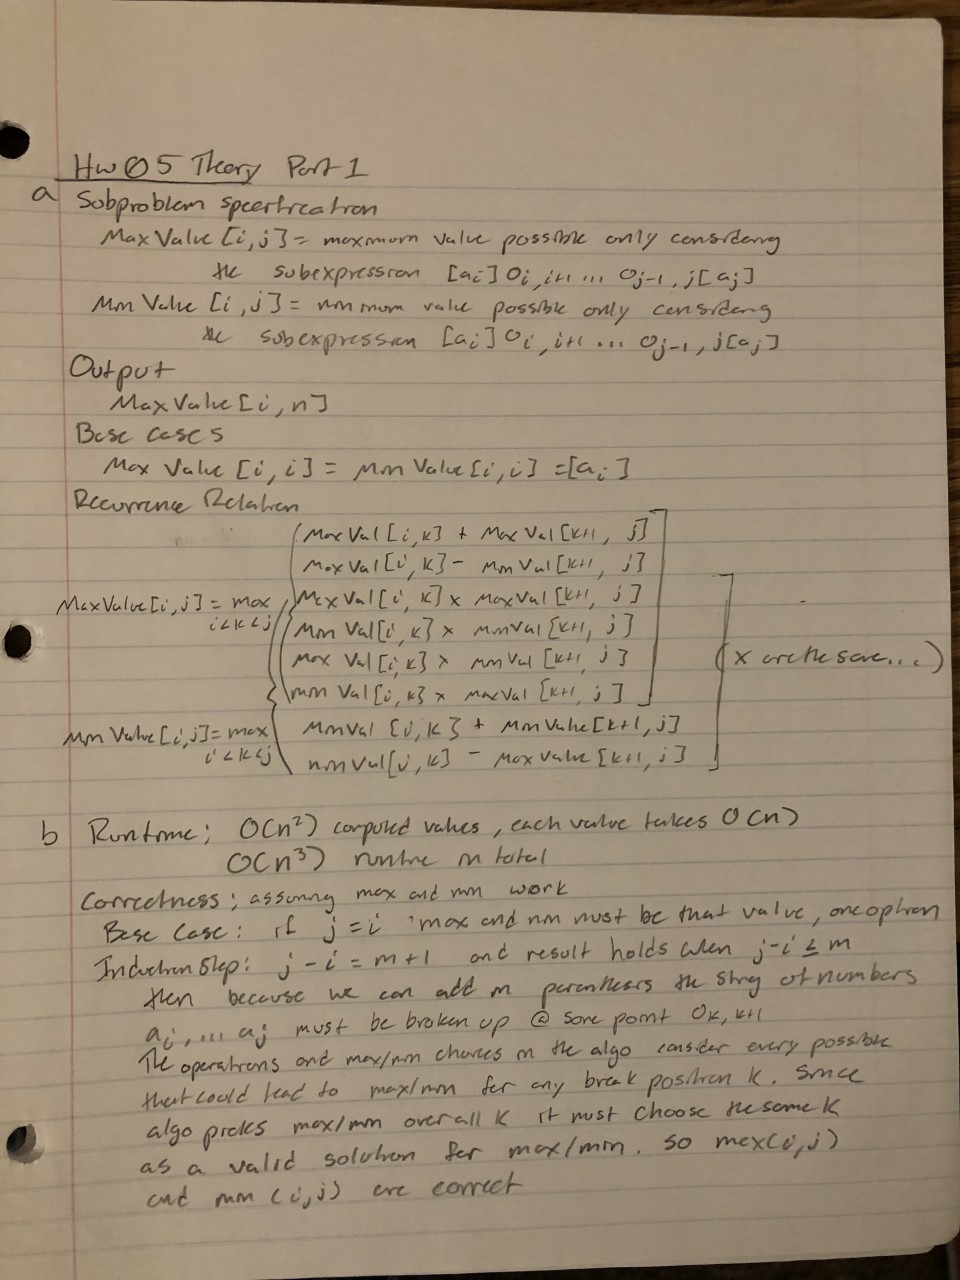 HW05 Theory Part 1
a Subproblem specification
Max Value [i,j] = maximum value possible only considering
the subexpression [ai] Oi,i+1 ... Oj-1,j [aj]
Min Value [i,j] = minimum value possible only considering
the subexpression [ai] Oi,i+1 ... Oj-1,j [aj]
Output
Max Value [i,n]
Base cases
Max Value [i,i] = Min Value [i,i] = [ai]
Recurrence Relation
Max Val [i,k] + Max Val [k+1, j]
Max Val [i,k] - Min Val [k+1, j]
Max Value [i,j] = max Max Val [i,k] x Max Val [k+1, j]
i<k<j Min Val [i,k] x Min Val [k+1, j]
Max Val [i,k] x Min Val [k+1, j] (x are the same...)
Min Val [i,k] x Max Val [k+1, j]
Min Value [i,j] = max Min Val [i,k] + Min Value [k+1,j]
i<k<j min Val [i,k] - Max Value [k+1, j]
b Runtime; O(n²) computed values, each value takes O(n)
O(n³) runtime in total
Correctness; assuming max and min work
Base Case: if j=i max and min must be that value, one option
Induction Step: j-i = m+1 and result holds when j-i ≤ m
then because we can add in parenthesis the string of numbers
ai, ... aj must be broken up @ some point Ok,k+1
The operations and max/min choices in the algo consider every possible
that could lead to max/min for any break position k. Since
algo picks max/min over all k it must choose the same k
as a valid solution for max/min. so max(i,j)
and min (i,j) are correct